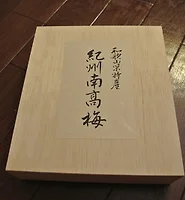 和歌山県特産
紀州南高梅